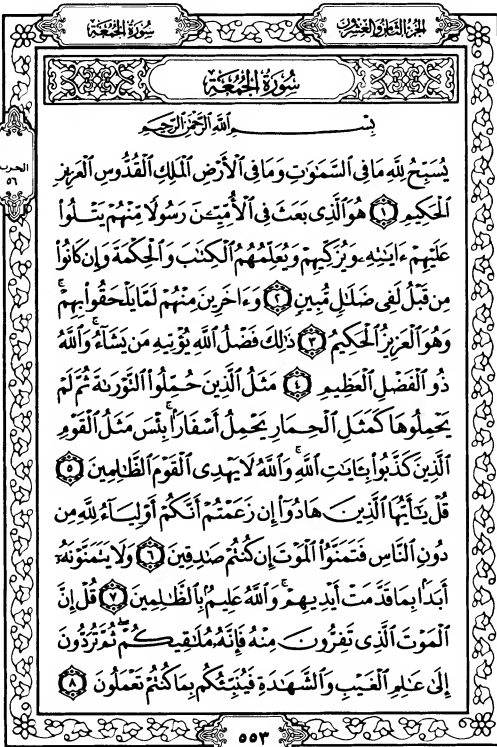 سُورَةُ الْجُمُعَةِ الجُزْءُ الثَّامِنُ وَالعِشْرُونَ
سُورَةُ الْجُمُعَةِ
بِسْمِ ٱللَّهِ ٱلرَّحْمَٰنِ ٱلرَّحِيمِ
يُسَبِّحُ لِلَّهِ مَا فِى ٱلسَّمَٰوَٰتِ وَمَا فِى ٱلْأَرْضِ ٱلْمَلِكِ ٱلْقُدُّوسِ ٱلْعَزِيزِ
الحزب
٥٦
ٱلْحَكِيمِ ١ هُوَ ٱلَّذِى بَعَثَ فِى ٱلْأُمِّيِّـۧنَ رَسُولًا مِّنْهُمْ يَتْلُوا۟
عَلَيْهِمْ ءَايَٰتِهِۦ وَيُزَكِّيهِمْ وَيُعَلِّمُهُمُ ٱلْكِتَٰبَ وَٱلْحِكْمَةَ وَإِن كَانُوا۟
مِن قَبْلُ لَفِى ضَلَٰلٍ مُّبِينٍ ٢ وَءَاخَرِينَ مِنْهُمْ لَمَّا يَلْحَقُوا۟ بِهِمْ ۚ
وَهُوَ ٱلْعَزِيزُ ٱلْحَكِيمُ ٣ ذَٰلِكَ فَضْلُ ٱللَّهِ يُؤْتِيهِ مَن يَشَآءُ ۚ وَٱللَّهُ
ذُو ٱلْفَضْلِ ٱلْعَظِيمِ ٤ مَثَلُ ٱلَّذِينَ حُمِّلُوا۟ ٱلتَّوْرَىٰةَ ثُمَّ لَمْ
يَحْمِلُوهَا كَمَثَلِ ٱلْحِمَارِ يَحْمِلُ أَسْفَارًۢا ۚ بِئْسَ مَثَلُ ٱلْقَوْمِ
ٱلَّذِينَ كَذَّبُوا۟ بِـَٔايَٰتِ ٱللَّهِ ۚ وَٱللَّهُ لَا يَهْدِى ٱلْقَوْمَ ٱلظَّٰلِمِينَ ٥
قُلْ يَٰٓأَيُّهَا ٱلَّذِينَ هَادُوٓا۟ إِن زَعَمْتُمْ أَنَّكُمْ أَوْلِيَآءُ لِلَّهِ مِن
دُونِ ٱلنَّاسِ فَتَمَنَّوُا۟ ٱلْمَوْتَ إِن كُنتُمْ صَٰدِقِينَ ٦ وَلَا يَتَمَنَّوْنَهُۥٓ
أَبَدًۢا بِمَا قَدَّمَتْ أَيْدِيهِمْ ۚ وَٱللَّهُ عَلِيمٌۢ بِٱلظَّٰلِمِينَ ٧ قُلْ إِنَّ
ٱلْمَوْتَ ٱلَّذِى تَفِرُّونَ مِنْهُ فَإِنَّهُۥ مُلَٰقِيكُمْ ۖ ثُمَّ تُرَدُّونَ
إِلَىٰ عَٰلِمِ ٱلْغَيْبِ وَٱلشَّهَٰدَةِ فَيُنَبِّئُكُم بِمَا كُنتُمْ تَعْمَلُونَ ٨
٥٥٣